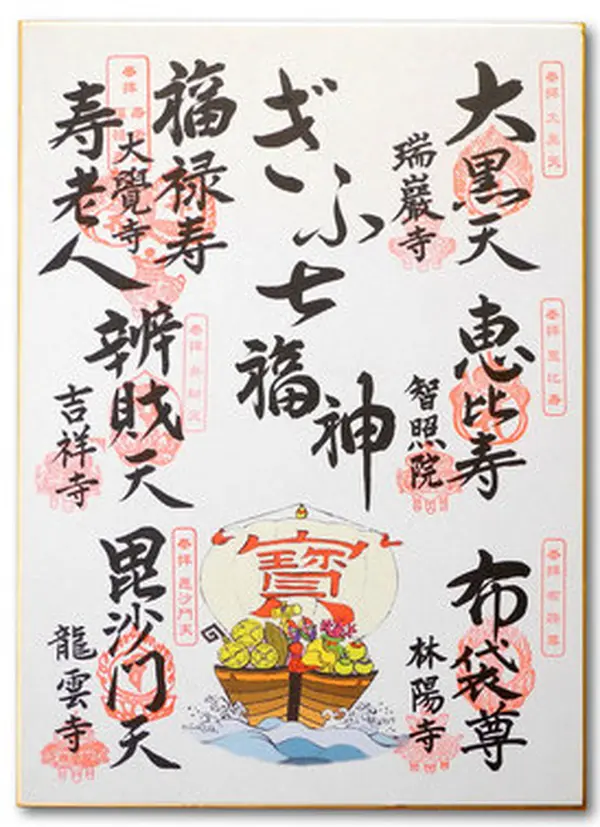 大黒天
瑞巖寺
恵比寿
智照院
布袋尊
林陽寺
ぎふ七福神
寳
福禄寿
大覺寺
寿老人
辨賎天
吉祥寺
毘沙門天
龍雲寺
奉拝 大黒天
奉拝 恵比寿
奉拝 布袋尊
奉拝 毘沙門天